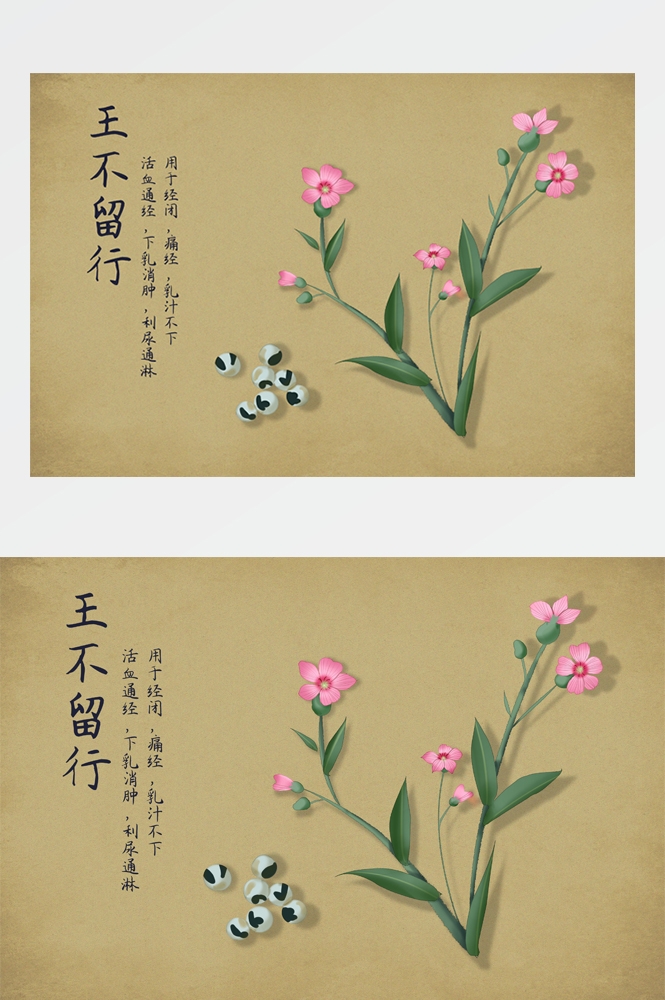 王不留行
用于经闭,痛经,乳汁不下
活血通经,下乳消肿,利尿通淋
王不留行
用于经闭,痛经,乳汁不下
活血通经,下乳消肿,利尿通淋